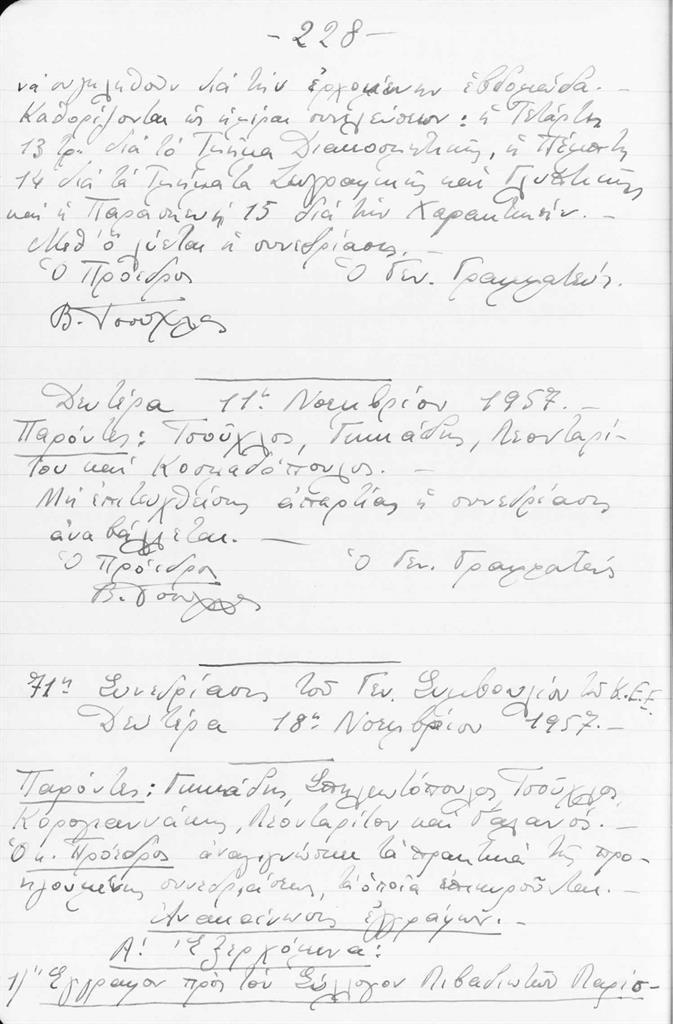 -228-
νά συγκληθοῦν διά τήν ἐρχομένην ἑβδομάδα. -
Καθορίζονται ὡς ἡμέραι συνελεύσεων: ἡ Τετάρτη
13 τρ. διά τό Τμῆμα Διακοσμητικῆς, ἡ Πέμπτη
14 διά τά Τμήματα Ζωγραφικῆς καί Γλυπτικῆς
καί ἡ Παρασκευή 15 διά τήν Χαρακτικήν. -
Μεθ' ὅ λύεται ἡ συνεδρίασις. -
Ὁ Πρόεδρος Ὁ Γεν. Γραμματεύς.
Β. Τσοῦχλος
Δευτέρα 11η Νοεμβρίου 1957. -
Παρόντες: Τσοῦχλος, Γκικάδης, Λεονταρί-
του καί Κοσμαδόπουλος. -
Μή ἐπιτευχθείσης ἀπαρτίας ἡ συνεδρίασις
ἀναβάλλεται. -
Ὁ Πρόεδρος Ὁ Γεν. Γραμματεύς
Β. Τσοῦχλος
71η Συνεδρίασις τοῦ Γεν. Συμβουλίου τοῦ Κ.Ε.Ε.
Δευτέρα 18η Νοεμβρίου 1957. -
Παρόντες: Γκικάδης, Σπηλιωτόπουλος, Τσοῦχλος,
Κορογιαννάκης, Λεονταρίτου καί Γαλανός. -
Ὁ κ. Πρόεδρος ἀναγιγνώσκει τά πρακτικά τῆς προ-
ηγουμένης συνεδριάσεως, τά ὁποῖα ἐπικυροῦνται. -
Ἀνακοίνωσις ἐγγράφων. -
Α! Ἐξερχόμενα:
1) Ἔγγραφον πρός τόν Σύλλογον Λιβαδιωτῶν Παρισ-